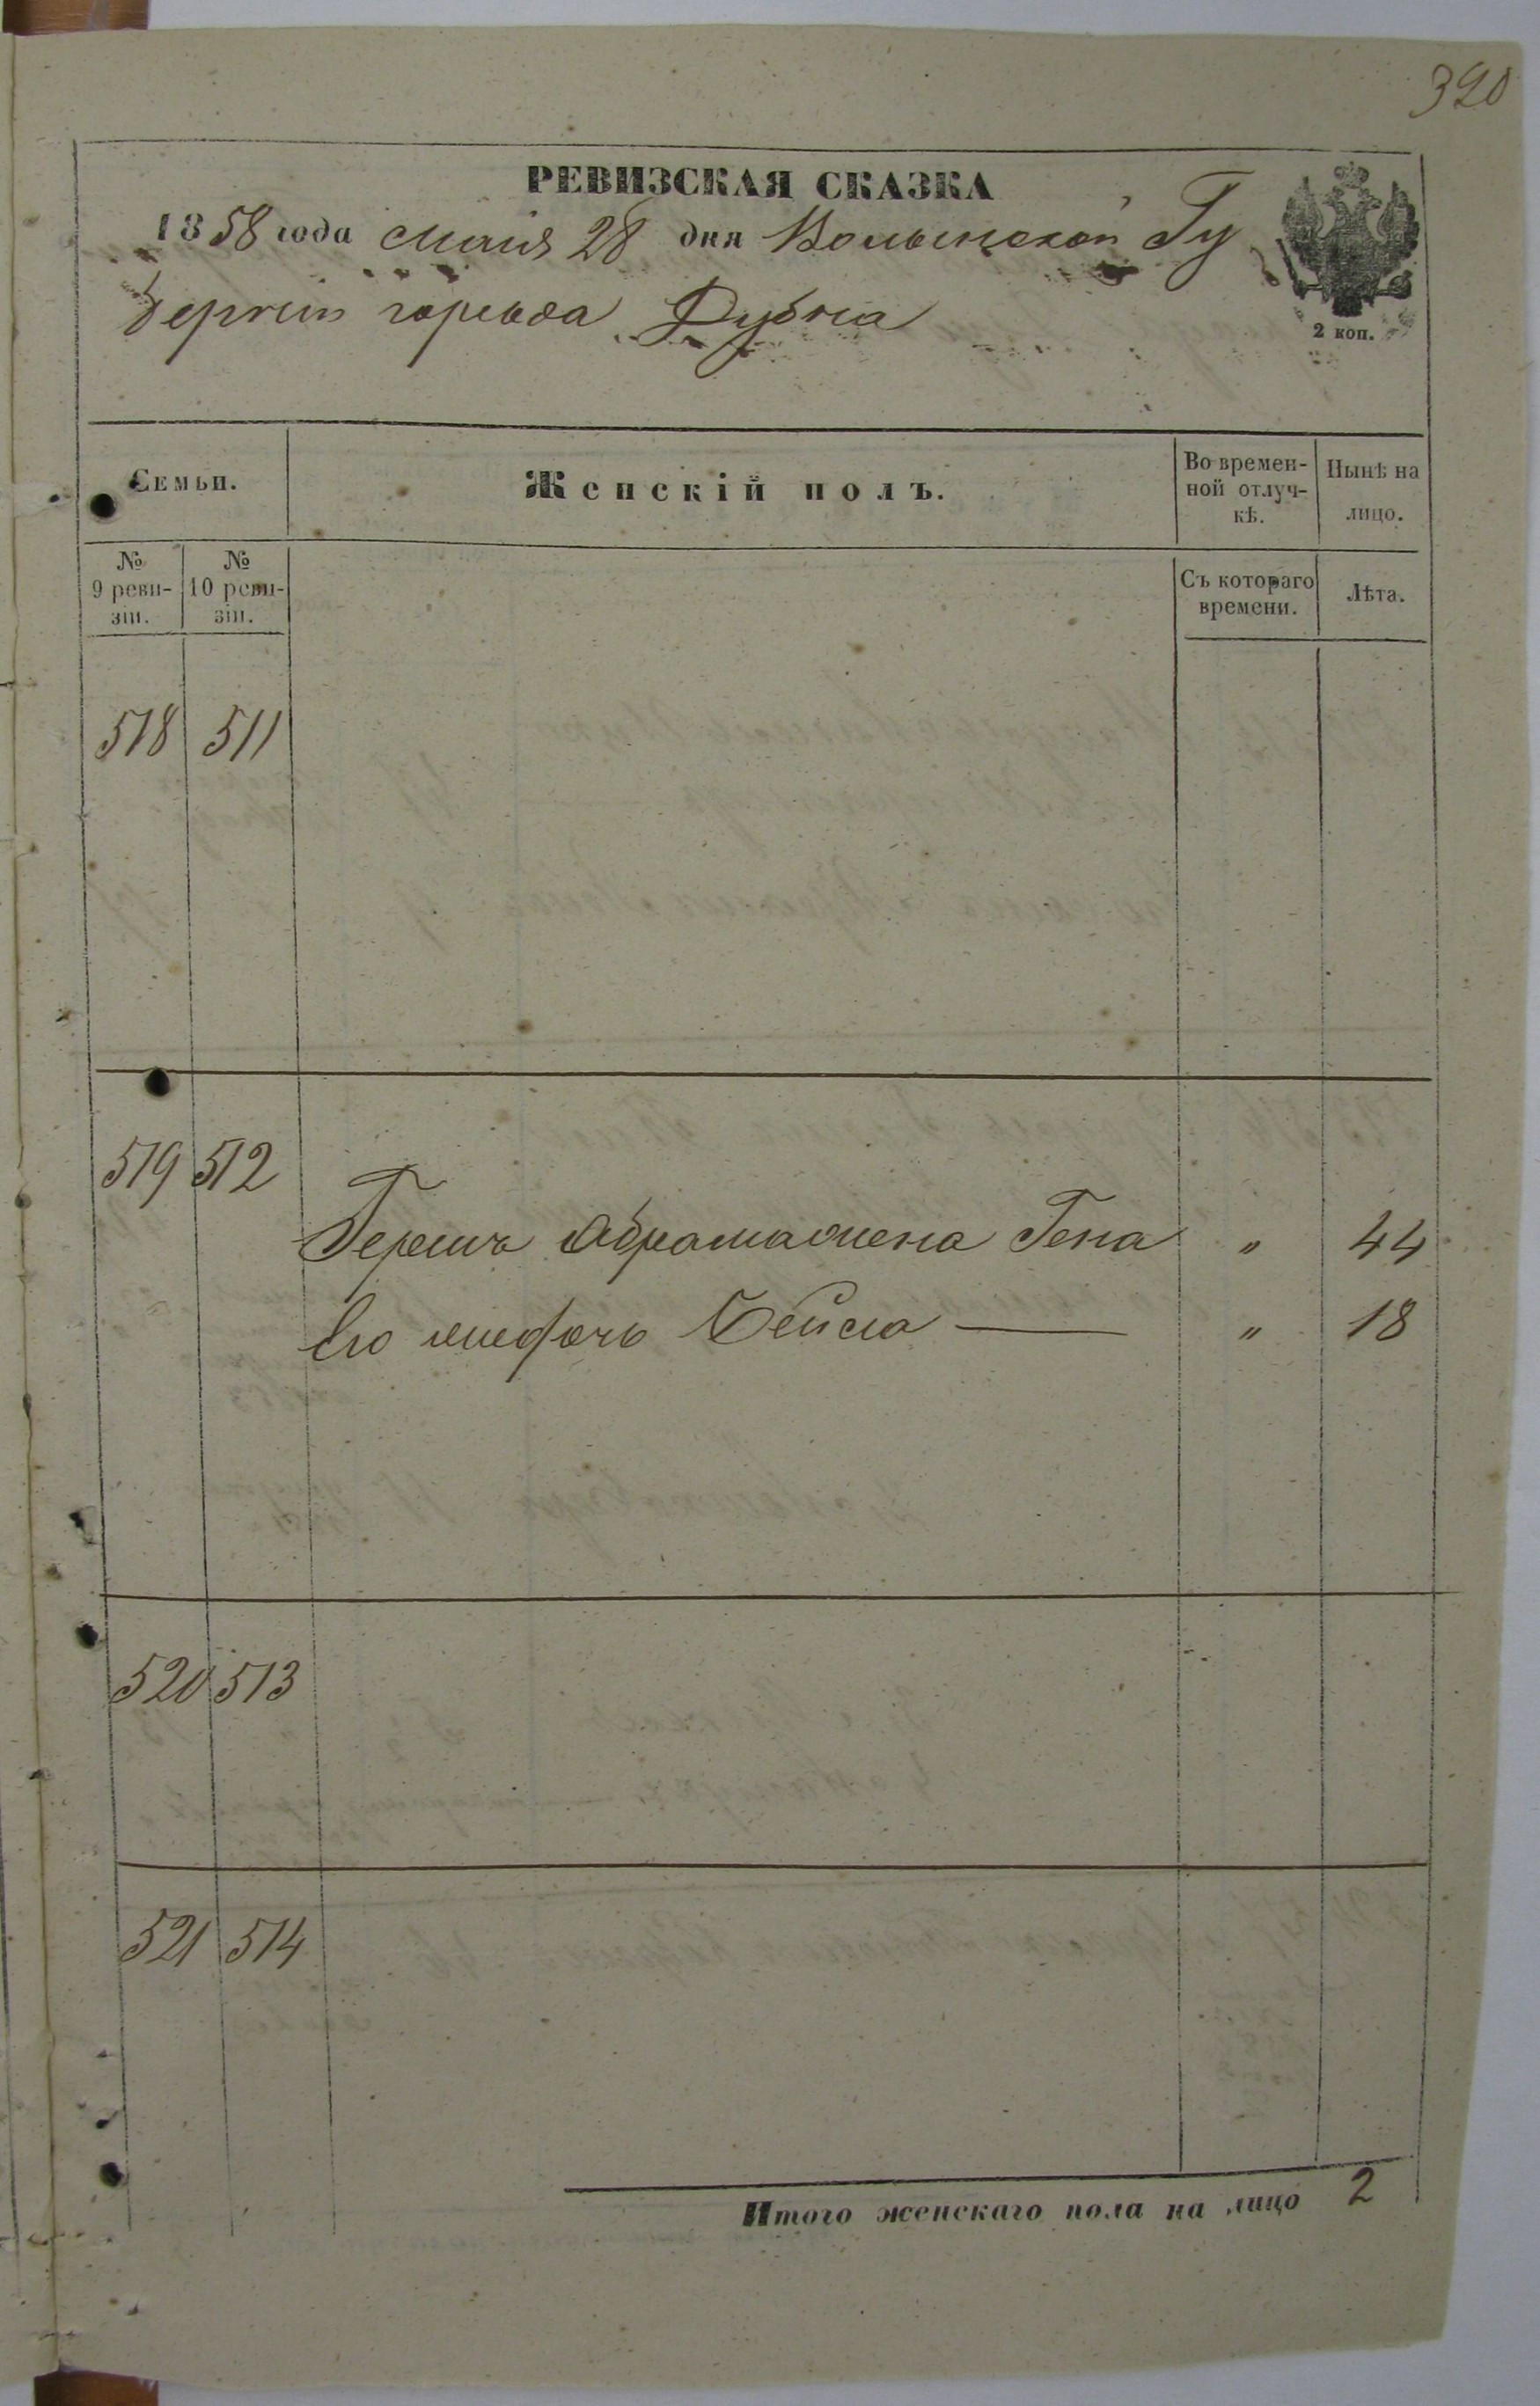 390
РЕВИЗСКАЯ СКАЗКА
1858 года Маия 28 дня Волынской Гу
берніи города Дубна
2 коп.
Семьи.
Женскій полъ.
Во времен-
ной отлуч-
кѣ.
Нынѣ на
лицо.
№
9 реви-
зіи.
№
10 реви-
зіи.
Съ котораго
времени.
Лѣта.
518 511
519 512
Гершъ Абрама жена Гена " 44
Его дочь Бейла — " 18
520 513
521 514
Итого женскаго пола на лицо 2